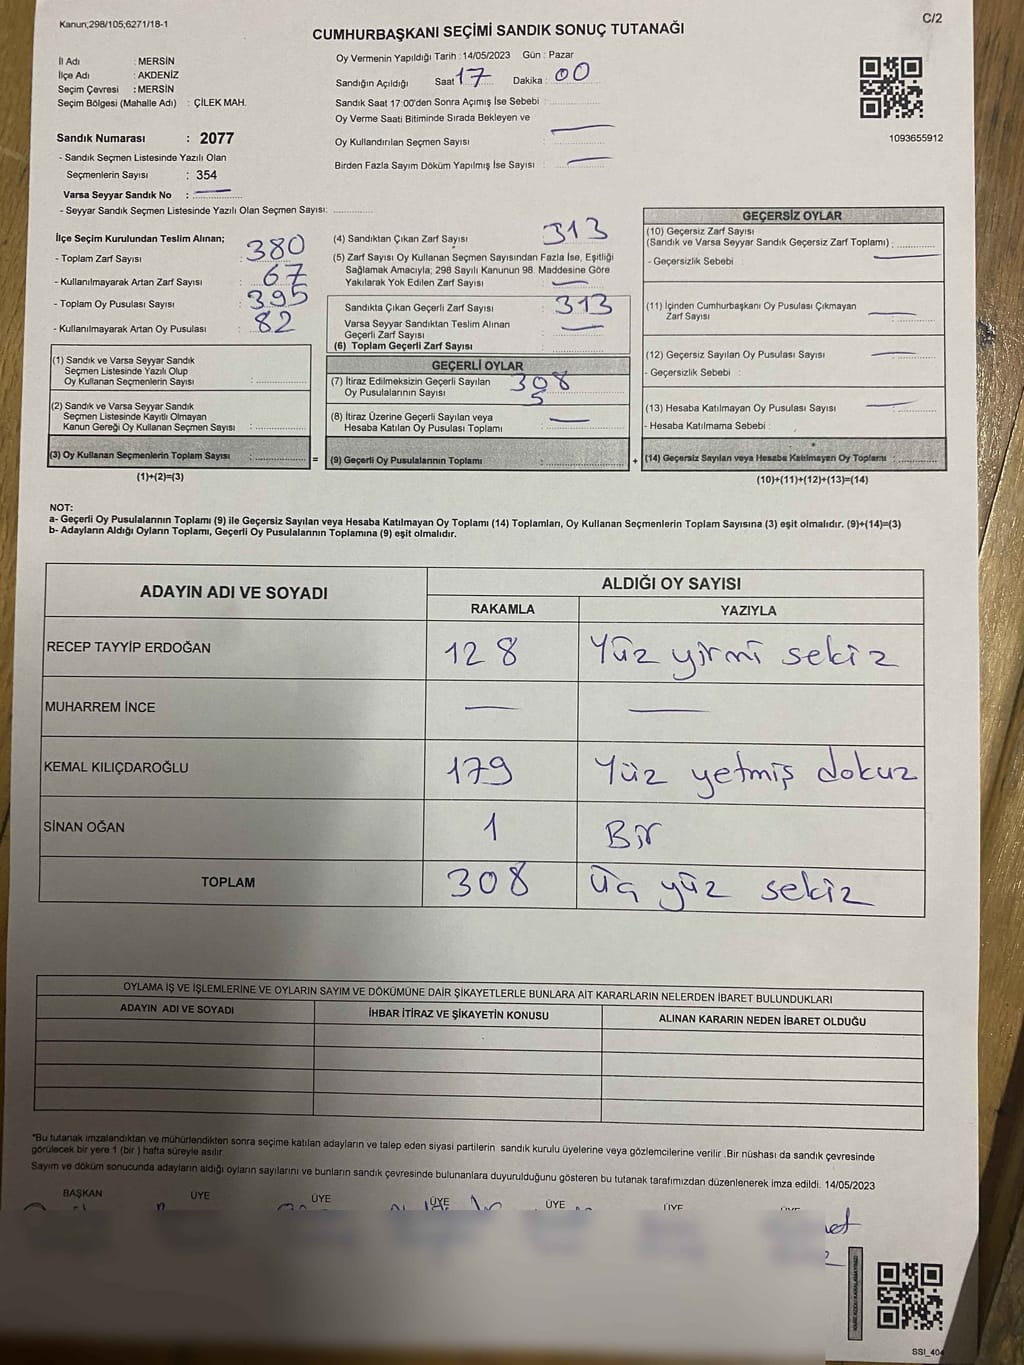 Kanun;298/105;6271/18-1
C/2
CUMHURBAŞKANI SEÇİMİ SANDIK SONUÇ TUTANAĞI
İl Adı : MERSİN
İlçe Adı : AKDENİZ
Seçim Çevresi : MERSİN
Seçim Bölgesi (Mahalle Adı) : ÇİLEK MAH.
Sandık Numarası : 2077
- Sandık Seçmen Listesinde Yazılı Olan
Seçmenlerin Sayısı : 354
Varsa Seyyar Sandık No :
- Seyyar Sandık Seçmen Listesinde Yazılı Olan Seçmen Sayısı:
Oy Vermenin Yapıldığı Tarih : 14/05/2023 Gün : Pazar
Sandığın Açıldığı Saat 17 Dakika : 00
Sandık Saat 17:00'den Sonra Açımış İse Sebebi :
Oy Verme Saati Bitiminde Sırada Bekleyen ve
Oy Kullandırılan Seçmen Sayısı :
Birden Fazla Sayım Döküm Yapılmış İse Sayısı :
1093655912
İlçe Seçim Kurulundan Teslim Alınan;
- Toplam Zarf Sayısı : 380
- Kullanılmayarak Artan Zarf Sayısı : 67
- Toplam Oy Pusulası Sayısı : 395
- Kullanılmayarak Artan Oy Pusulası : 82
(1) Sandık ve Varsa Seyyar Sandık
Seçmen Listesinde Yazılı Olup
Oy Kullanan Seçmenlerin Sayısı :
(2) Sandık ve Varsa Seyyar Sandık
Seçmen Listesinde Kayıtlı Olmayan
Kanun Gereği Oy Kullanan Seçmen Sayısı :
(3) Oy Kullanan Seçmenlerin Toplam Sayısı :
(1)+(2)=(3)
(4) Sandıktan Çıkan Zarf Sayısı : 313
(5) Zarf Sayısı Oy Kullanan Seçmen Sayısından Fazla İse, Eşitliği
Sağlamak Amacıyla; 298 Sayılı Kanunun 98. Maddesine Göre
Yakılarak Yok Edilen Zarf Sayısı :
Sandıkta Çıkan Geçerli Zarf Sayısı : 313
Varsa Seyyar Sandıktan Teslim Alınan
Geçerli Zarf Sayısı :
(6) Toplam Geçerli Zarf Sayısı :
GEÇERLİ OYLAR
(7) İtiraz Edilmeksizin Geçerli Sayılan 308
Oy Pusulalarının Sayısı : 5
(8) İtiraz Üzerine Geçerli Sayılan veya
Hesaba Katılan Oy Pusulası Toplamı :
= (9) Geçerli Oy Pusulalarının Toplamı :
GEÇERSİZ OYLAR
(10) Geçersiz Zarf Sayısı
(Sandık ve Varsa Seyyar Sandık Geçersiz Zarf Toplamı) :
- Geçersizlik Sebebi :
(11) İçinden Cumhurbaşkanı Oy Pusulası Çıkmayan
Zarf Sayısı :
(12) Geçersiz Sayılan Oy Pusulası Sayısı :
- Geçersizlik Sebebi :
(13) Hesaba Katılmayan Oy Pusulası Sayısı :
- Hesaba Katılmama Sebebi :
+ (14) Geçersiz Sayılan veya Hesaba Katılmayan Oy Toplamı :
(10)+(11)+(12)+(13)=(14)
NOT:
a- Geçerli Oy Pusulalarının Toplamı (9) ile Geçersiz Sayılan veya Hesaba Katılmayan Oy Toplamı (14) Toplamları, Oy Kullanan Seçmenlerin Toplam Sayısına (3) eşit olmalıdır. (9)+(14)=(3)
b- Adayların Aldığı Oyların Toplamı, Geçerli Oy Pusulalarının Toplamına (9) eşit olmalıdır.
ADAYIN ADI VE SOYADI
ALDIĞI OY SAYISI
RAKAMLA YAZIYLA
RECEP TAYYİP ERDOĞAN 128 Yüz yirmi sekiz
MUHARREM İNCE
KEMAL KILIÇDAROĞLU 179 Yüz yetmiş dokuz
SİNAN OĞAN 1 Bir
TOPLAM 308 üç yüz sekiz
OYLAMA İŞ VE İŞLEMLERİNE VE OYLARIN SAYIM VE DÖKÜMÜNE DAİR ŞİKAYETLERLE BUNLARA AİT KARARLARIN NELERDEN İBARET BULUNDUKLARI
ADAYIN ADI VE SOYADI İHBAR İTİRAZ VE ŞİKAYETİN KONUSU ALINAN KARARIN NEDEN İBARET OLDUĞU
*Bu tutanak imzalandıktan ve mühürlendikten sonra seçime katılan adayların ve talep eden siyasi partilerin sandık kurulu üyelerine veya gözlemcilerine verilir .Bir nüshası da sandık çevresinde
görülecek bir yere 1 (bir ) hafta süreyle asılır.
Sayım ve döküm sonucunda adayların aldığı oyların sayılarını ve bunların sandık çevresinde bulunanlara duyurulduğunu gösteren bu tutanak tarafımızdan düzenlenerek imza edildi. 14/05/2023
BAŞKAN ÜYE ÜYE ÜYE ÜYE ÜYE